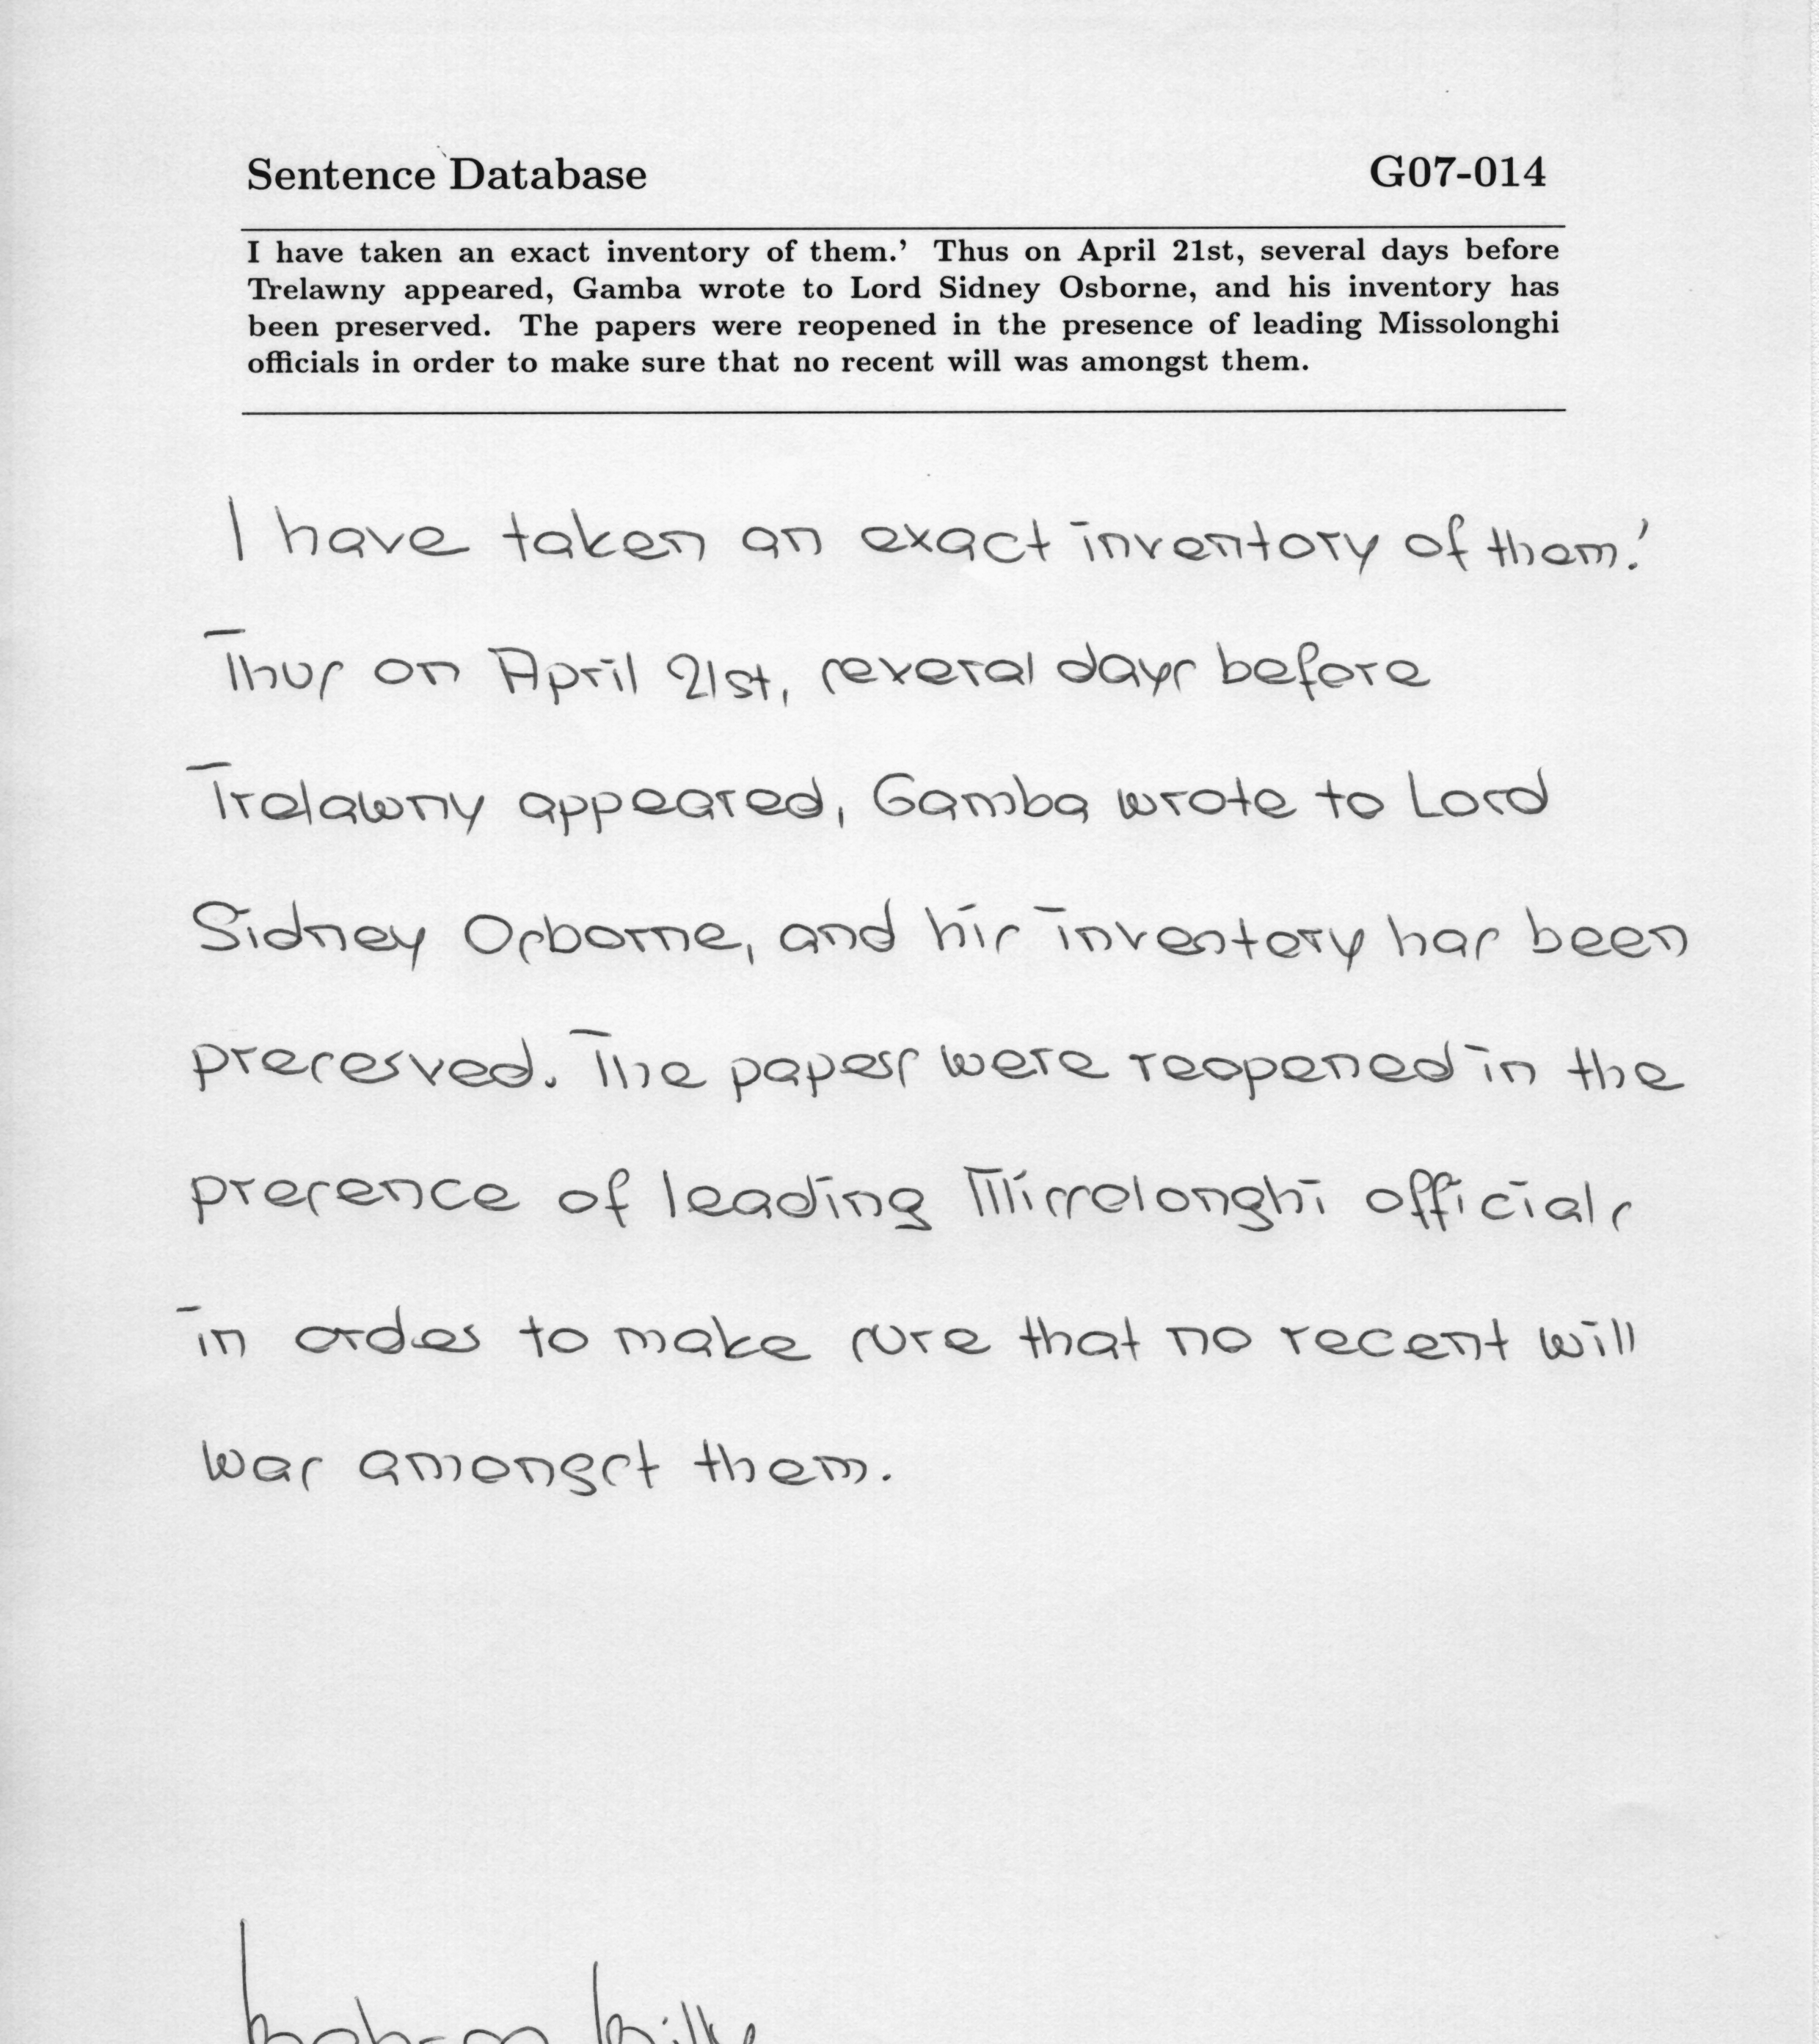 Sentence Database G07-014
I have taken an exact inventory of them.' Thus on April 21st, several days before
Trelawny appeared, Gamba wrote to Lord Sidney Osborne, and his inventory has
been preserved. The papers were reopened in the presence of leading Missolonghi
officials in order to make sure that no recent will was amongst them.
I have taken an exact inventory of them.'
Thus on April 21st, several days before
Trelawny appeared, Gamba wrote to Lord
Sidney Osborne, and his inventory has been
preserved. The papers were reopened in the
presence of leading Missolonghi officials
in order to make sure that no recent will
was amongst them.